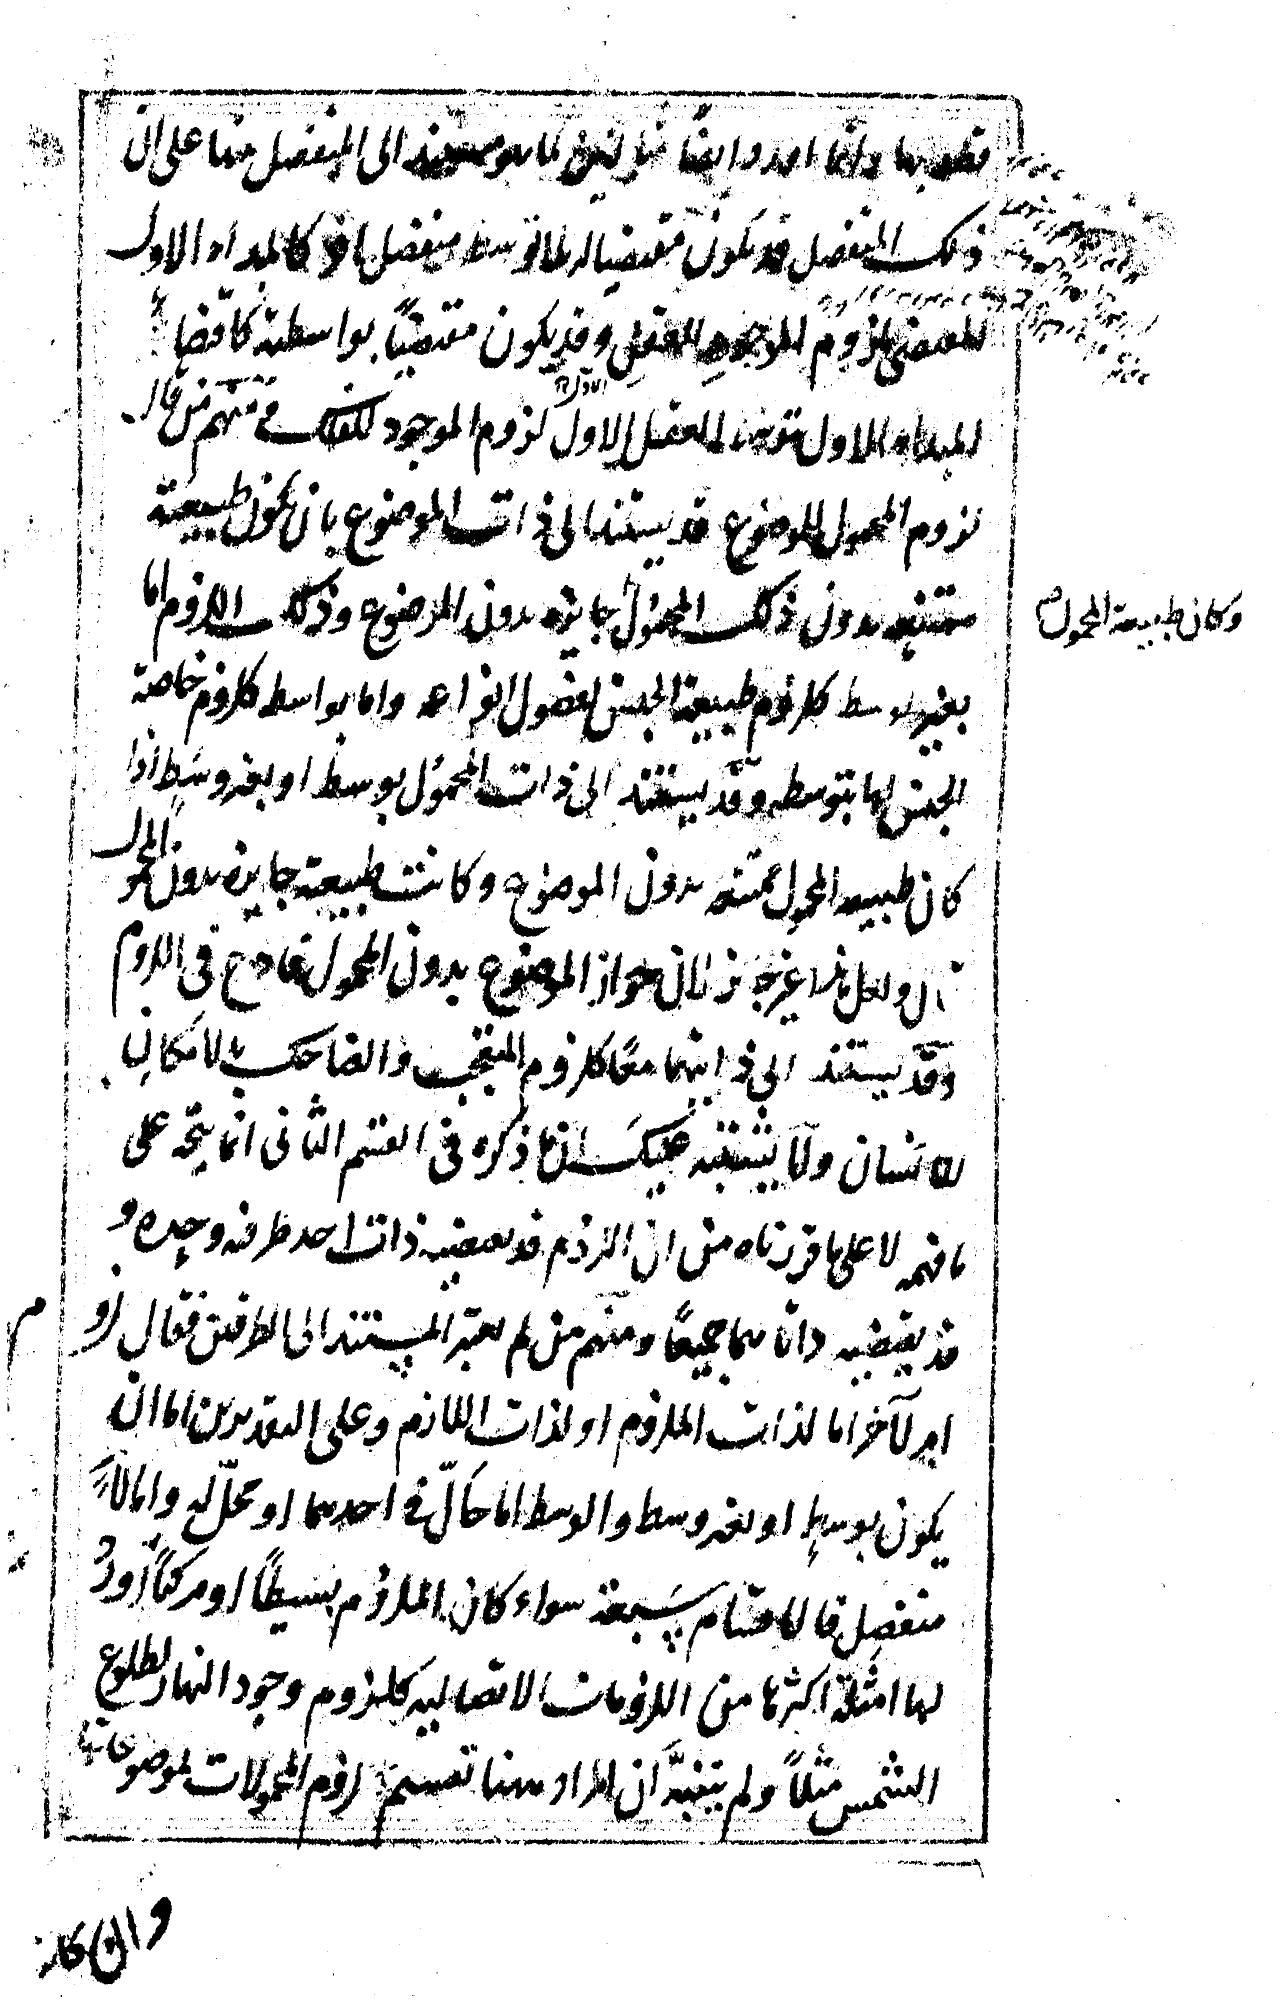 وايضا لما هو مستند الى المنفصل منها على ان
ذلك المنفصل قد يكون مقتضيا له بلا توسط منفصل اخر كالمبداء الاول
المقتضى لزوم الموجود للعقل وقد يكون مقتضيًا بواسطة كاقتضاء
المبداء الاول بتوسط العقل الاول لزوم الموجود للفلك ومنهم من قال
لزوم المحمول للموضوع قد يستند الى ذات الموضوع بان يكون طبيعته
ممتنعه بدون ذلك المحمول جايزه بدون الموضوع وذلك اللزوم اما
وكان طبيعة المحمول
بغير وسط كلزوم طبيعة الجنس لفصول انواعه واما بوسط كلزوم خاصة
الجنس لها بتوسطه وقد يستند الى ذات المحمول بوسط او بغير وسط اذا
كان طبيعه المحمول ممتنعه بدون الموضوع وكانت طبيعة جايزه بدون المحمول
قال ولعل هذا غير جايز لان جواز الموضوع بدون المحمول قادح فى اللزوم
وقد يستند الى ذاتيهما معًا كلزوم المتعجب والضاحك بالامكان
للانسان ولا يشتبه عليك ان ما ذكره فى القسم الثانى انما يتجه على
ما فهمه لا على ما قررناه من ان اللازم قد يقتضيه ذات احد طرفيه وحده و
قد يقتضيه ذاتاهما جميعًا ومنهم من لم يعتبر المستند الى الطرفين فقال لزوم
امر لآخر اما لذات الملزوم او لذات اللازم وعلى التقديرين اما ان
يكون بوسط او بغير وسط والوسط اما حالّ فى احدهما او محلّ له واما لا
منفصل فالاقسام سبعة سواء كان الملزوم بسيطًا او مركبًا واورد
لها امثلة اكثرها من اللزومات الاتصالية كلزوم وجود النهار لطلوع
الشمس مثلاً ولم يتنبّه ان المراد ههنا تقسيم لزوم المحمولات لموضوعاتها
وان كان